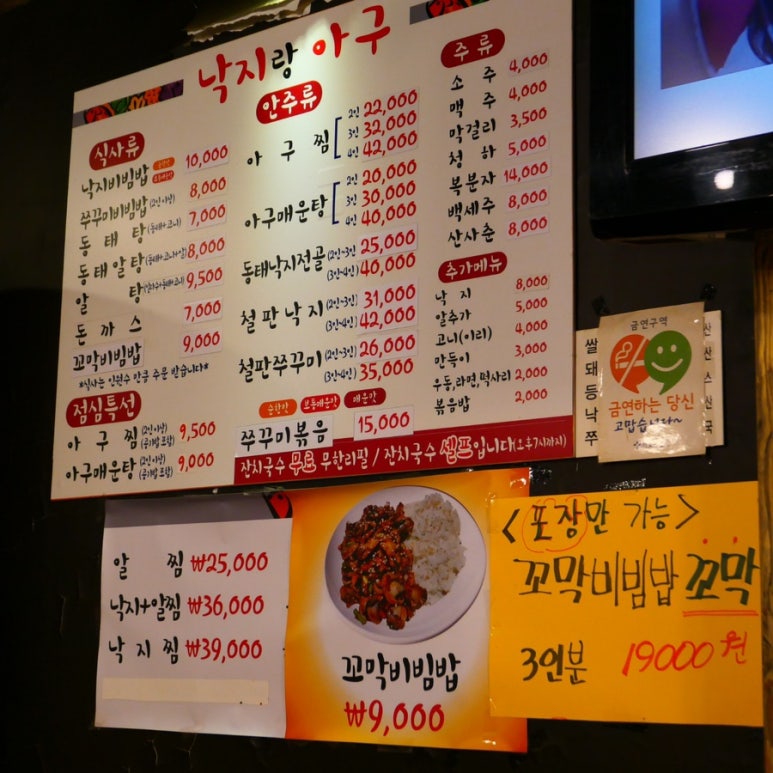 낙지랑 아구
식사류
낙지비빔밥 10,000
쭈꾸미비빔밥(2인이상) 8,000
동태탕(동태+고니) 7,000
동태알탕(동태+고니+알) 8,000
알탕 9,500
돈까스 7,000
꼬막비빔밥 9,000
*식사는 인원수 만큼 주문 받습니다*
점심특선
아구찜(2인이상)(공기밥 포함) 9,500
아구매운탕(2인이상)(공기밥 포함) 9,000
안주류
아구찜
2인 22,000
3인 32,000
4인 42,000
아구매운탕
2인 20,000
3인 30,000
4인 40,000
동태낙지전골
(2인~3인) 25,000
(3인~4인) 40,000
철판낙지
(2인~3인) 31,000
(3인~4인) 42,000
철판쭈꾸미
(2인~3인) 26,000
(3인~4인) 35,000
순한맛 보통매운맛 매운맛
쭈꾸미볶음 15,000
주류
소주 4,000
맥주 4,000
막걸리 3,500
청하 5,000
복분자 14,000
백세주 8,000
산사춘 8,000
추가메뉴
낙지 8,000
알추가 5,000
고니(이리) 4,000
만득이 3,000
우동,라면,떡사리 2,000
볶음밥 2,000
잔치국수 무료 무한리필 / 잔치국수 셀프입니다(오후7시까지)
쌀
돼
등
낙
쭈
산
산
스
산
국
금연구역
금연하는 당신
고맙습니다~
알찜 ₩25,000
낙지+알찜 ₩36,000
낙지찜 ₩39,000
꼬막비빔밥
₩9,000
<포장만 가능>
꼬막비빔밥 꼬막
3인분 19000원